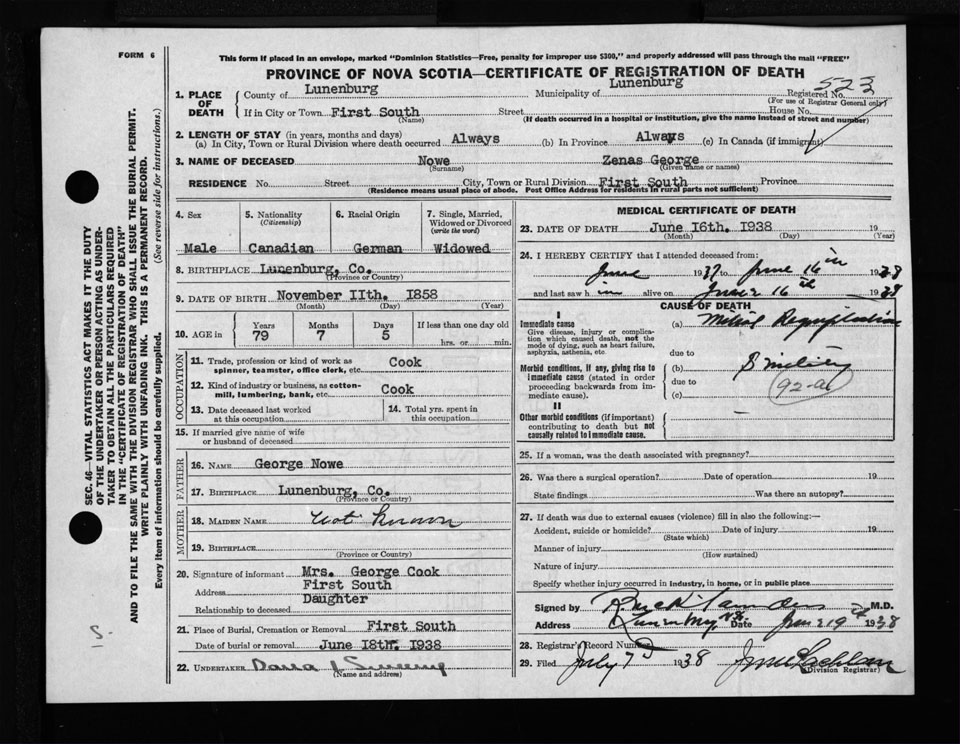 FORM 6
This form if placed in an envelope, marked "Dominion Statistics—Free, penalty for improper use $300," and properly addressed will pass through the mail "FREE"
PROVINCE OF NOVA SCOTIA—CERTIFICATE OF REGISTRATION OF DEATH
523
1. PLACE OF DEATH
County of Lunenburg Municipality of Lunenburg Registered No.
(For use of Registrar General only)
If in City or Town First South Street House No.
(Name) (If death occurred in a hospital or institution, give the name instead of street and number)
2. LENGTH OF STAY (in years, months and days)
(a) In City, Town or Rural Division where death occurred Always (b) In Province Always (c) In Canada (if immigrant)
3. NAME OF DECEASED Nowe Zenas George
(Surname) (Given name or names)
RESIDENCE No. Street City, Town or Rural Division First South Province
(Residence means usual place of abode. Post Office Address for residents in rural parts not sufficient)
4. Sex 5. Nationality (Citizenship) 6. Racial Origin 7. Single, Married, Widowed or Divorced (write the word)
Male Canadian German Widowed
8. BIRTHPLACE Lunenburg, Co.
(Province or Country)
9. DATE OF BIRTH November 11th. 1858
(Month) (Day) (Year)
10. AGE in Years Months Days If less than one day old
79 7 5 hrs. or min.
OCCUPATION
11. Trade, profession or kind of work as spinner, teamster, office clerk, etc. Cook
12. Kind of industry or business, as cotton-mill, lumbering, bank, etc. Cook
13. Date deceased last worked at this occupation 14. Total yrs. spent in this occupation
15. If married give name of wife or husband of deceased
FATHER
16. NAME George Nowe
17. BIRTHPLACE Lunenburg, Co.
(Province or Country)
MOTHER
18. MAIDEN NAME Not Known
19. BIRTHPLACE
(Province or Country)
20. Signature of informant Mrs. George Cook
Address First South
Relationship to deceased Daughter
21. Place of Burial, Cremation or Removal First South
Date of burial or removal June 18th. 1938
22. UNDERTAKER
(Name and address)
MEDICAL CERTIFICATE OF DEATH
23. DATE OF DEATH June 16th. 1938 19
(Month) (Day) (Year)
24. I HEREBY CERTIFY that I attended deceased from:
June 1937 to June 16th 1938
and last saw him alive on June 16th 1938
CAUSE OF DEATH
I
Immediate cause
Give disease, injury or complication which caused death, not the mode of dying, such as heart failure, asphyxia, asthenia, etc.
(a) Mitral Regurgitation
due to
Morbid conditions, if any, giving rise to immediate cause (stated in order proceeding backwards from immediate cause).
(b) Senility
due to
(c)
92-a
II
Other morbid conditions (if important) contributing to death but not causally related to immediate cause.
25. If a woman, was the death associated with pregnancy?
26. Was there a surgical operation? Date of operation 19
State findings Was there an autopsy?
27. If death was due to external causes (violence) fill in also the following:—
Accident, suicide or homicide? Date of injury 19
(State which)
Manner of injury
(How sustained)
Nature of injury
Specify whether injury occurred in industry, in home, or in public place
Signed by M.D.
Address Lunenburg N.S. Date June 19th 1938
28. Registrar's Record Number
29. Filed July 7 1938
(Division Registrar)
SEC. 46—VITAL STATISTICS ACT MAKES IT THE DUTY
OF THE UNDERTAKER OR PERSON ACTING AS UNDER-
TAKER TO OBTAIN ALL THE PARTICULARS REQUIRED
IN THE "CERTIFICATE OF REGISTRATION OF DEATH"
AND TO FILE THE SAME WITH THE DIVISION REGISTRAR WHO SHALL ISSUE THE BURIAL PERMIT.
WRITE PLAINLY WITH UNFADING INK. THIS IS A PERMANENT RECORD.
Every item of information should be carefully supplied. (See reverse side for instructions.)
S.